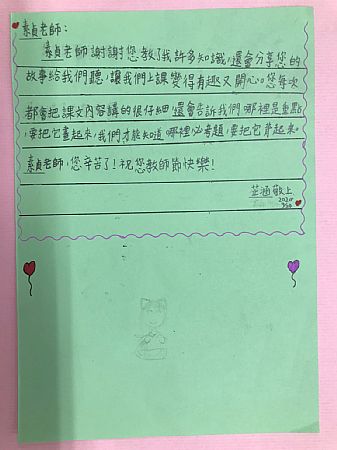 素貞老師：
素貞老師謝謝您教了我許多知識，還會分享您的
故事給我們聽，讓我們上課變得有趣又開心。您每次
都會把課文內容講的很仔細，還會告訴我們哪裡是重點，
要把它畫起來，我們才能知道哪裡必考題，要把它背起來。
素貞老師，您辛苦了！祝您教師節快樂！
芷涵敬上
2020